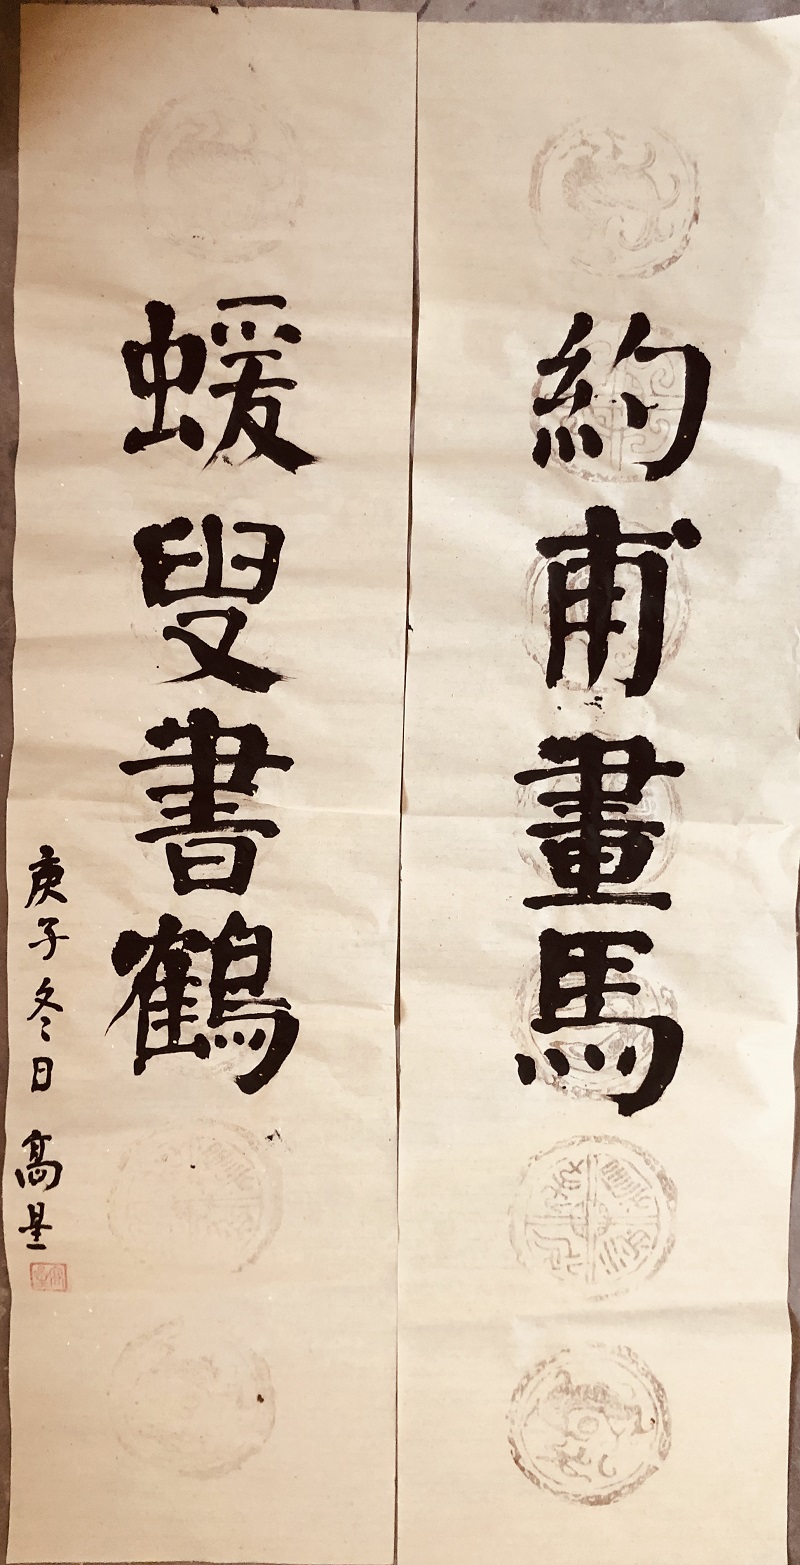 約甫畫馬
蝯叟書鶴
庚子冬日 高星